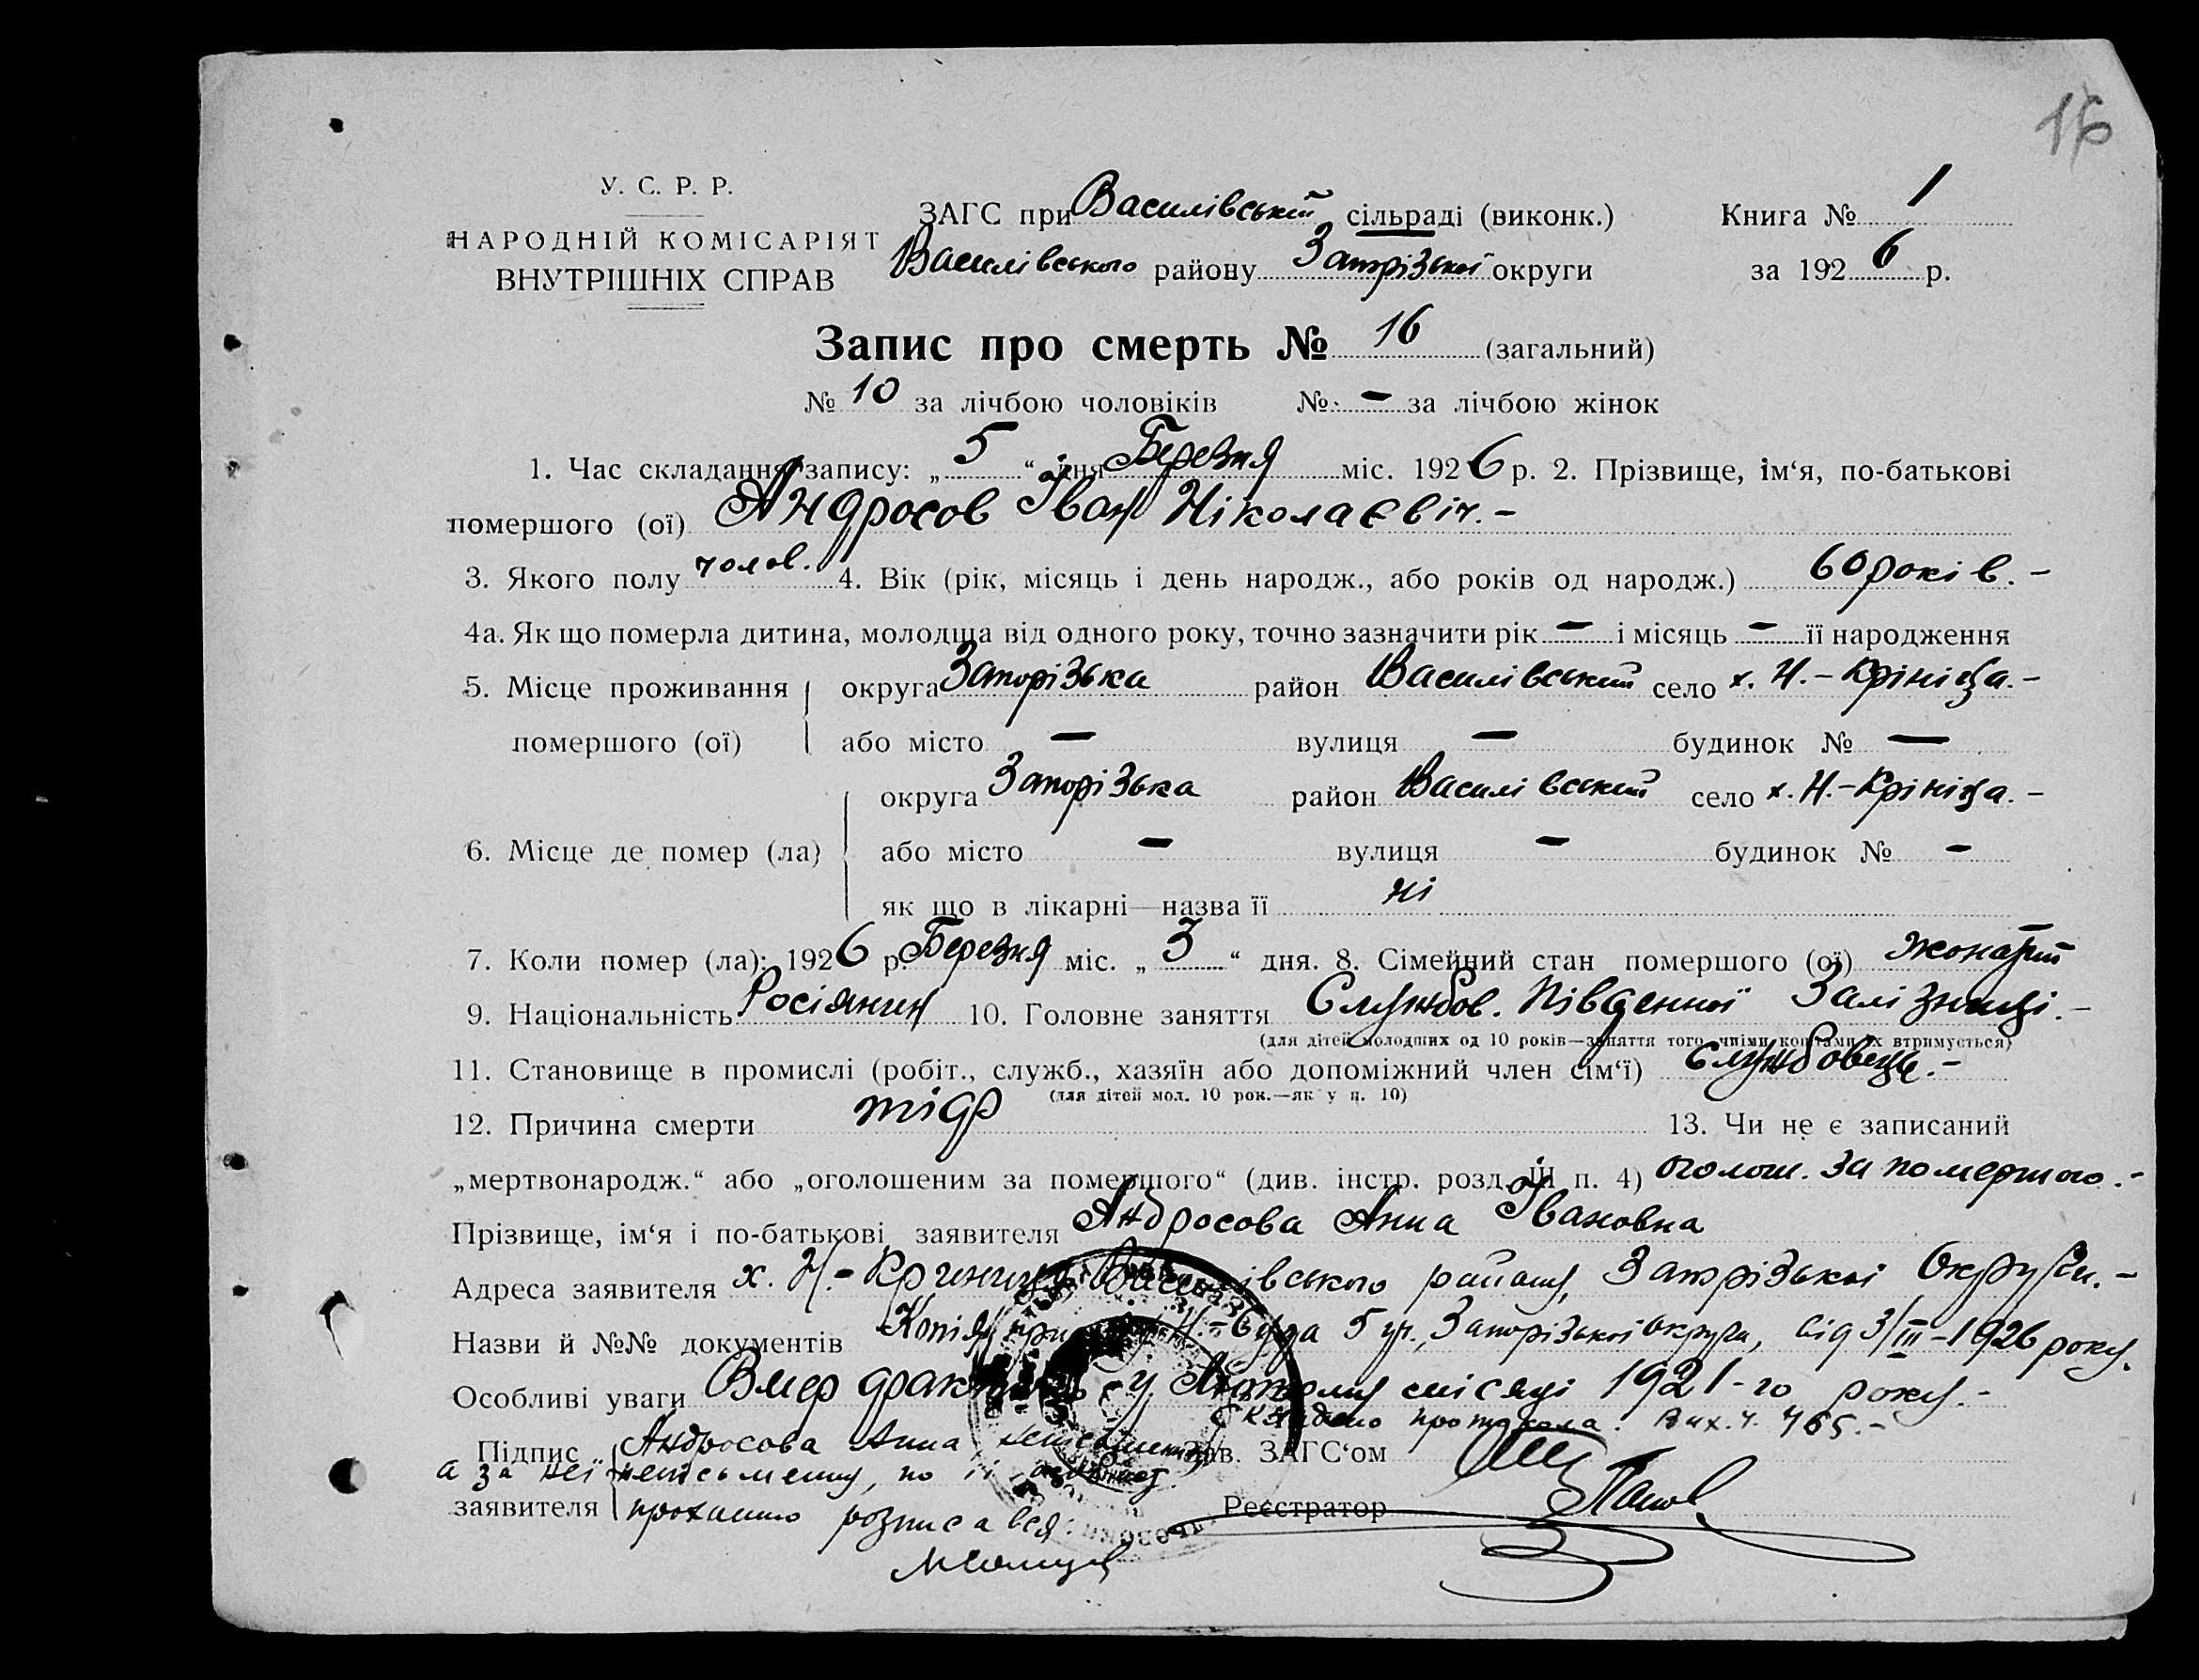 16
У. С. Р. Р.
НАРОДНІЙ КОМІСАРІЯТ
ВНУТРІШНІХ СПРАВ
ЗАГС при Василівський сільраді (виконк.)
Василівського району Запорізької округи
Книга № 1
за 1926 р.
Запис про смерть № 16 (загальний)
№ 10 за лічбою чоловіків № – за лічбою жінок
1. Час складання запису: „5“ дня Березня міс. 1926 р. 2. Прізвище, ім‘я, по-батькові
помершого (ої) Андросов Іван Ніколаєвіч. –
3. Якого полу чолов. 4. Вік (рік, місяць і день народж., або років од народж.) 60 років. –
4а. Як що померла дитина, молодша від одного року, точно зазначити рік – і місяць – її народження
5. Місце проживання округа Запорізька район Василівський село х. Н.-Крініца. –
помершого (ої) або місто – вулиця – будинок № –
округа Запорізька район Василівський село х. Н.-Крініца. –
6. Місце де помер (ла) або місто – вулиця – будинок № –
як що в лікарні—назва її ні
7. Коли помер (ла): 1926 р. Березня міс. „3“ дня. 8. Сімейний стан помершого (ої) жонатий
9. Національність Росіянин 10. Головне заняття Службов. Південної Залізниці. –
(для дітей молодших од 10 років—заняття того, чиїми коштами їх втримується)
11. Становище в промислі (робіт., служб., хазяїн або допоміжний член сім‘ї) службовець. –
(для дітей мол. 10 рок.—як у п. 10)
12. Причина смерти тіф 13. Чи не є записаний
„мертвонародж.“ або „оголошеним за помершого“ (див. інстр. розд. III п. 4) оголош. за помершого. –
Прізвище, ім‘я і по-батькові заявителя Андросова Анна Івановна
Адреса заявителя х. Н.-Криниця Василівського району, Запорізької Округи. –
Назви й №№ документів Копія Н.-Суда 5 уч., Запорізької округи, від 3/III–1926 року.
Особливі уваги Вмер у місяці 1921-го року. –
протокола. Вих. ч. 465. –
Підпис Андросова Анна Зав. ЗАГС‘ом
а за неї неписьменну, по її
заявителя проханню розписався: Реєстратор